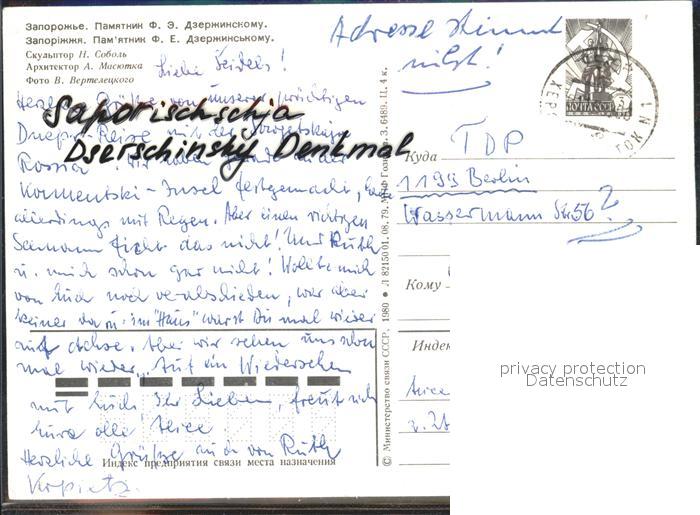 Запорожье. Памятник Ф. Э. Дзержинскому.
Запоріжжя. Пам'ятник Ф. Е. Дзержинському.
Скульптор Н. Соболь
Архитектор А. Масютка
Фото В. Вертелецкого
Adresse stimmt
nicht!
Liebe Seidels!
Herzl. Grüße von unserer prächtigen
Saporischschja
Dnepr-Reise mit der
Dserschinsky Denkmal
Rossia. Wir haben gerade an der
-Insel festgemacht,
allerdings mit Regen. Aber einen richtigen
Seemann ficht das nicht! Und Ruth
u. mich schon gar nicht! Wollte mich
von Euch noch verabschieden, war aber
keiner da u. im "Haus" warst Du mal wieder
auf Achse. Aber wir sehen uns schon
mal wieder. Auf ein Wiedersehen
mit Euch Ihr Lieben, freut sich
Eure alte Alice
Herzliche Grüße auch von Ruth
Индекс предприятия связи места назначения
© Министерство связи СССР, 1980 • Л 82150 01. 08. 79. МПФ Гознака. З. 6489. Ц. 4 к.
ПОЧТА СССР
Куда TDP
1199 Berlin
Wassermann Str. 56?
Кому
Индек
Alice
privacy protection
Datenschutz